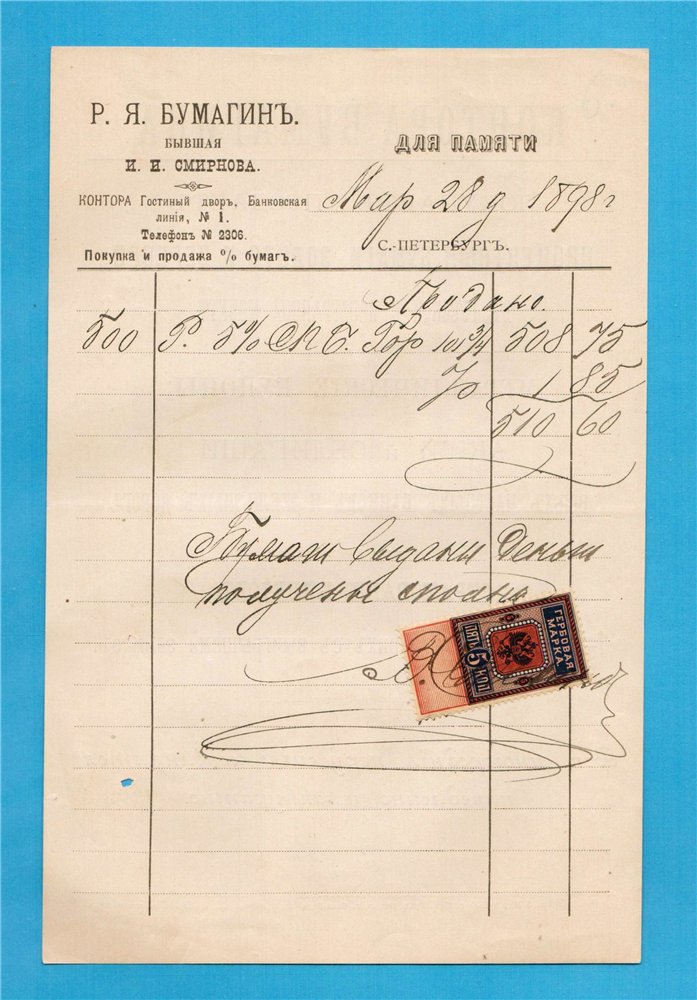 Р. Я. БУМАГИНЪ.
БЫВШАЯ
И. И. СМИРНОВА.
КОНТОРА Гостиный дворъ, Банковская
линія, № 1.
Телефонъ № 2306.
Покупка и продажа % бумагъ.
ДЛЯ ПАМЯТИ
Мар 28 д 1898 г
С.-ПЕТЕРБУРГЪ.
Продано.
500 Р. 5% СПБ. Гор 101 3/4 508 75
1 85
510 60
Бумаги выданы Деньги
получены сполна
ГЕРБОВАЯ
МАРКА
ПЯТЬ 5 КОП